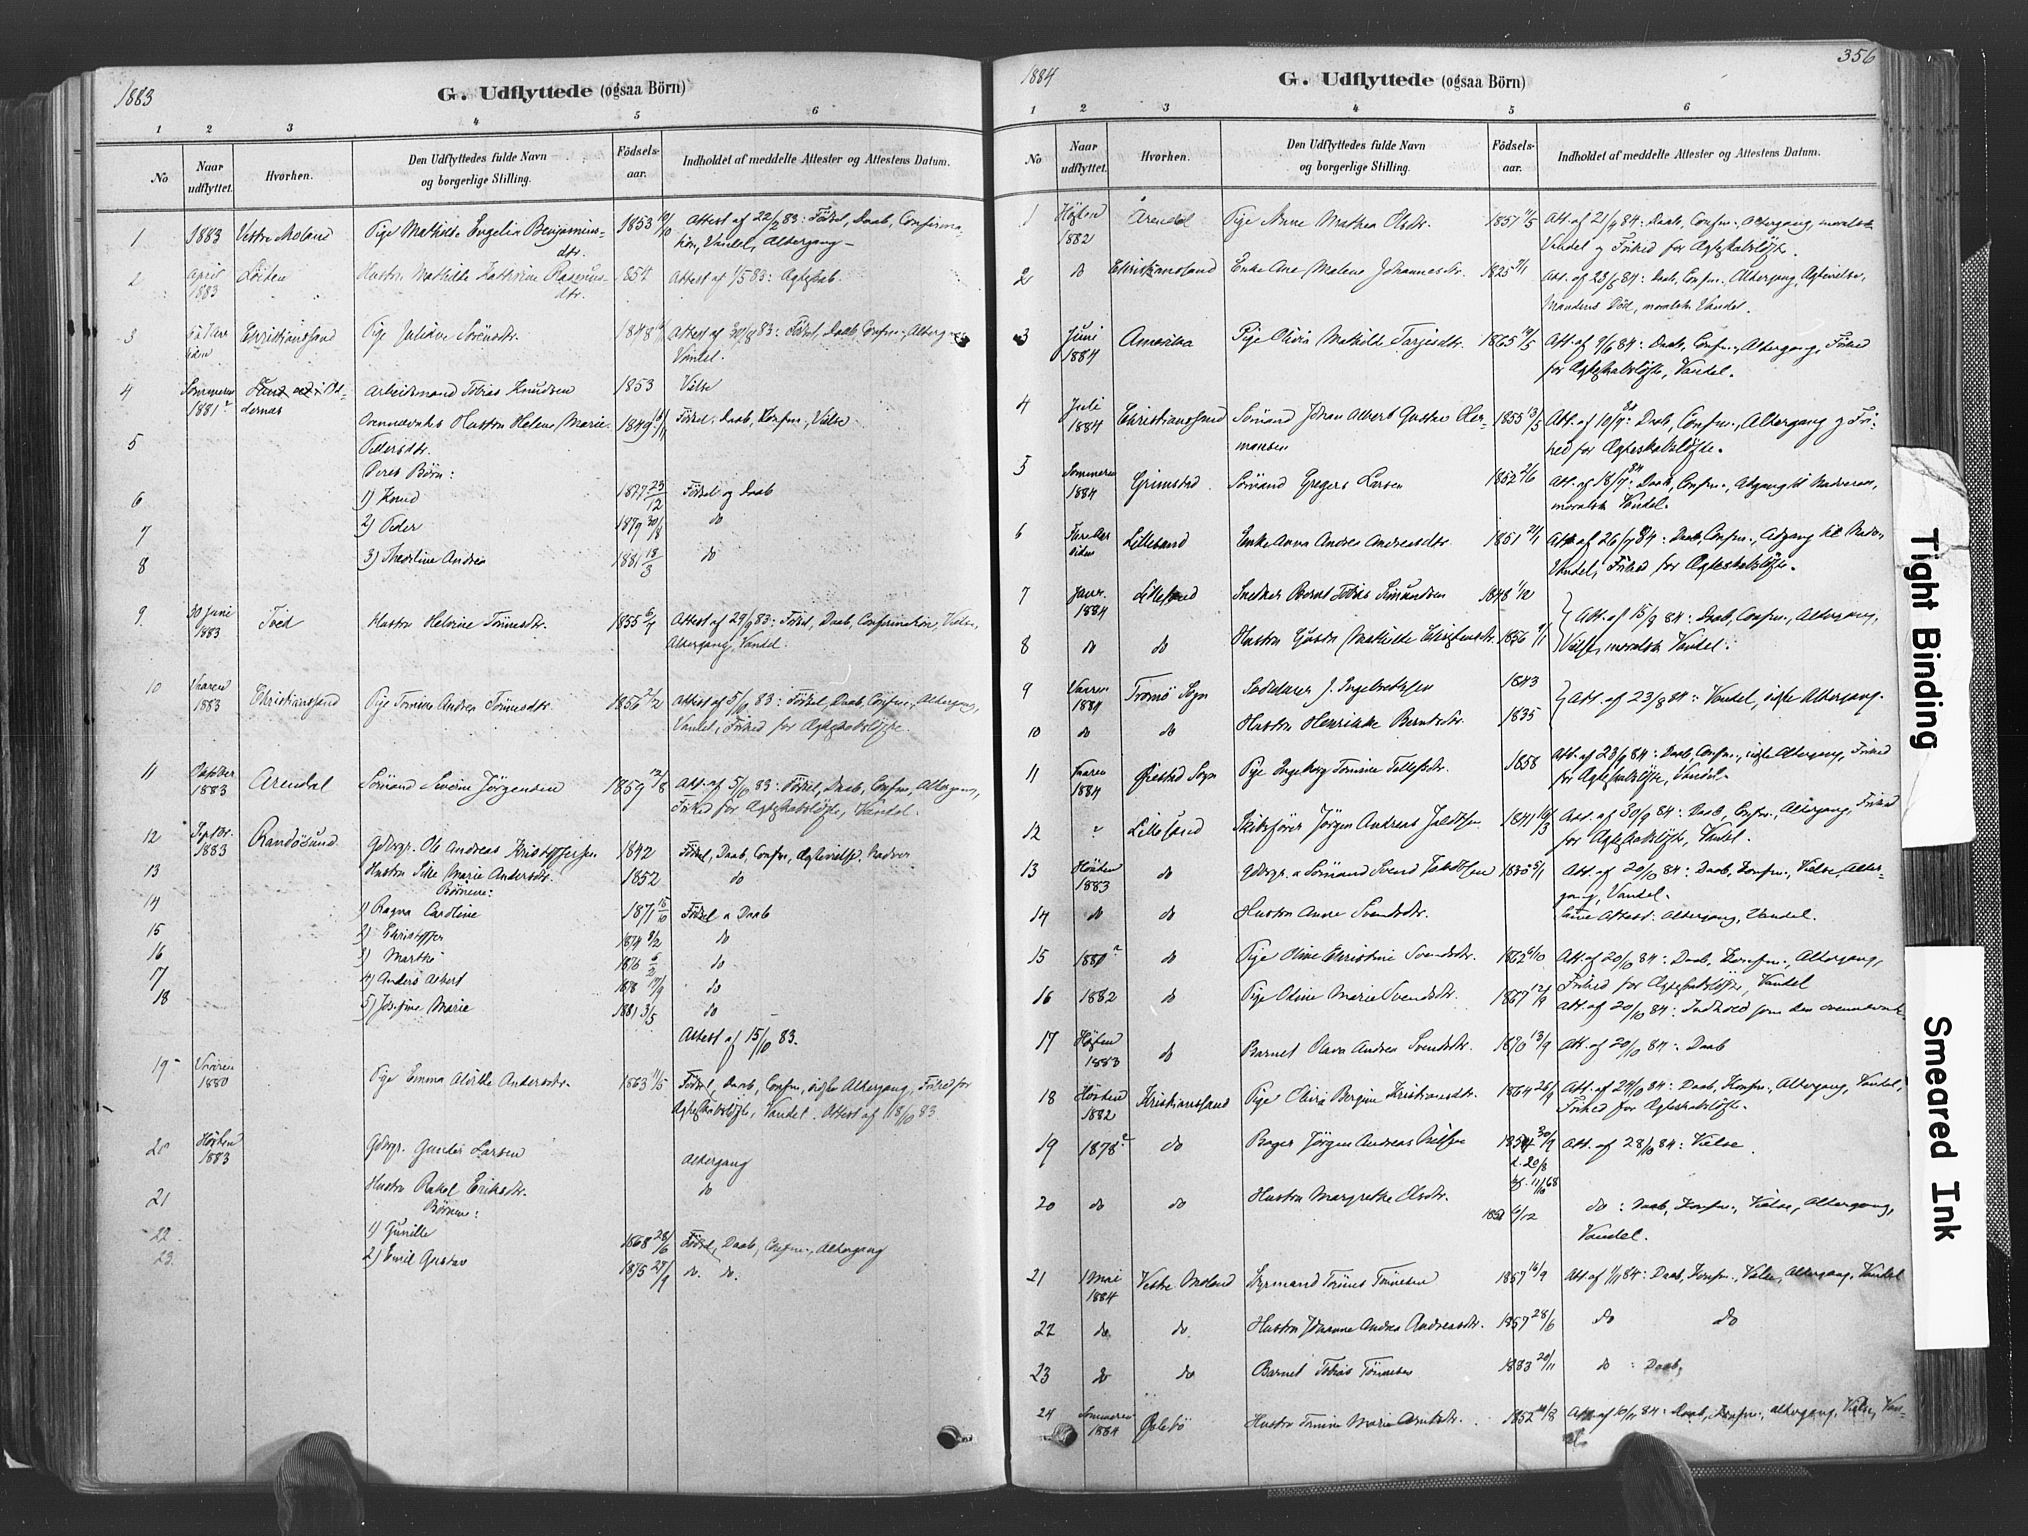 1883
G. Udflyttede (ogsaa Börn)
1 2 3 4 5 6
No
Naar udflyttet.
Hvorhen.
Den Udflyttedes fulde Navn og borgerlige Stilling.
Födsels-aar.
Indholdet af meddelte Attester og Attestens Datum.
1 1883 Vestre Moland Pige Mathilde Engelia Benjamins- 1853 19/10 Attest af 22/2 83: Födsel, Daab, Confirma-
dtr. tion, Vandel, Altergang
2 April 1883 Löiten Hustru Mathilde Kathrine Rasmus- 1854 Attest af 1/5 83: Ægteskab.
dtr.
3 Christianssand Pige Juliane Sörensdtr. 1848 Attest af 30/8 83: Födsel, Daab, Confm., Altergang
Vandel.
4 Sommeren 1881 Arbeidsmand Tobias Knudsen 1853 Vielse
5 Ovennævntes Hustru Helene Marie 1849 Födsel, Daab, Confm., Vielse
Pedersdtr.
Deres Börn:
6 1) Knud 1877 23/12 Födsel og Daab
7 2) Peder 1879 30/8 do
8 3) Thealine Andrea 1881 18/3 do
9. 30 Juni 1883 Tved Hustru Helene Tönnesdtr. 1855 6/9 Attest af 29/9 83: Födsel, Daab, Confirmation, Vielse,
Altergang, Vandel.
10 Vaaren 1883 Christianssand Pige Tomine Andrea Tönnesdtr. 1856 2/2 Attest af 5/10 83: Födsel, Daab, Confm., Altergang,
Vandel, Frihed for Ægteskabslöfte.
11 Oktober 1883 Arendal Sömand Severin Jörgensen 1859 12/8 Att. af 5/10 83: Födsel, Daab, Confm., Altergang,
Frihed for Ægteskabslöfte, Vandel.
12 Septbr. 1883 Randösund Gdbrgr. Ole Andreas Kristoffersen 1842 Födsel, Daab, Confm., Ægtevielse, Nadver
13 Hustru Silie Marie Andersdtr. 1852 do
Börnene:
14 1) Ragna Caroline 1871 15/10 Födsel o Daab
15 2) Christoffer 1874 8/2 do
16 3) Marthe 1876 6/2 do
17 4) Anders Albert 1878 17/9 do
18 5) Josefine Marie 1881 3/5 do
Attest af 15/10 83.
19 Vaaren 1880 Pige Emma Alvilde Andersdtr. 1863 11/5 Födsel, Daab, Confm., sidste Altergang, Frihed for
Ægteskabslöfte, Vandel. Attest af 18/10 83
20 Hösten 1883 Gdbrgr. Gunder Larsen Altergang
21 Hustru Rakel Eriksdtr. do
Börnene:
22 1) Gunille 1868 28/6 Födsel, Daab, Confm., Altergang
23. 2) Emil Gustav 1875 27/9 do. do.
356
1884
G. Udflyttede (ogsaa Börn)
1 2 3 4 5 6
No
Naar udflyttet.
Hvorhen.
Den Udflyttedes fulde Navn og borgerlige Stilling.
Födsels-aar.
Indholdet af meddelte Attester og Attestens Datum.
1 Hösten 1882 Arendal Pige Anne Mathea Olsdtr. 1857 Att. af 21/4 84: Daab, Confm., Altergang, moralsk
Vandel og Frihed for Ægteskabslöfte.
2 do Christianssand Enke Ane Malene Johannesdtr. 1825 Att. af 23/5 84: Daab, Confm., Altergang, Ægtevielse,
Mandens Död, moralsk Vandel.
3 Juni 1884 Amerika Pige Olivia Mathilde Tarjesdtr. 1865 Att. af 9/6 84: Daab, Confm., Altergang, Frihed
for Ægteskabslöfte, Vandel.
4 Juli 1884 Christianssand Sömand Johan Albert Gustav Her- 1855 13/5 Att. af 10/7 84: Daab, Confm., Altergang og Fri-
mansen hed for Ægteskabslöfte.
5 Sommeren 1884 Grimstad Sömand Gregers Larsen 1852 2/6 Att. af 18/7 84: Daab, Confm., Adgang til Nadveren,
moralsk Vandel.
6 Lillesand Enke Anna Andrea Andreasdtr. 1851 Att. af 26/7 84: Daab, Confm., Adgang til Nadv.,
Vandel, Frihed for Ægteskabslöfte.
7 Januar 1884 Lillesand Snedker Bernt Tobias Simundsen 1848 1/12 Att. af 15/9 84: Daab, Confm., Altergang,
8 do do Hustru Gusta Mathilde Christensdtr. 1856 Vielse, moralsk Vandel.
9 Vaaren 1884 Tromö Sogn J. Ingebretsen 1843 Att. af 23/8 84: Vandel, sidste Altergang.
10 do do Hustru Henrikke Berntsdtr. 1835
11 Vaaren 1884 Öiestad Sogn Pige Ingeborg Tomine Tellefsdtr. 1858 Att. af 23/9 84: Daab, Confm., sidste Altergang, Frihed
for Ægteskabslöfte, Vandel.
12 " Lillesand Skibsförer Jörgen Andreas 1841 Att. af 30/9 84: Daab, Confm., Altergang, Frihed
for Ægteskabslöfte, Vandel.
13 Hösten 1883 do Gdbrgr. o Sömand Svend 1835 Att. af 20/10 84: Daab, Konfm., Vielse, Alter-
gang, Vandel.
14 do do Hustru Anne Svendsdtr. Att: Altergang, Vandel.
15 1881 do Pige Oline Christine Svendsdtr. 1862 6/10 Att. af 20/10 84: Daab, Konfm., Altergang,
Frihed for Ægteskabslöfte, Vandel
16 1882 do Pige Oline Marie Svendsdtr. 1867 12/9 Att. af 20/10 84: Indhold som den ovennævnte
17 Hösten 1883 do Barnet Olava Andrea Svendsdtr. 1870 13/9 Att. af 20/10 84: Daab
18 Hösten 1882 Kristianssand Pige Olivia Bergine Kristiansdtr. 1864 26/9 Att. af 27/10 84: Daab, Konfm., Altergang, Vandel,
Frihed for Ægteskabslöfte.
19 1878 do Bager Jörgen Andreas 1854 30/9 Att. af 28/10 84: Vielse.
d. 20/8
kf. 11/10 68
20 do do Hustru Margrethe Olsdtr. 6/12 do: Daab, Konfm., Vielse, Altergang,
Vandel.
21 1 Mai 1884 Vestre Moland Styrmand Tönnes Tönnesen 1857 16/9 Att. af 1/11 84: Daab, Konfm., Vielse, Altergang, Vandel
22 do do. Hustru Johanne Andrea Andreasdtr. 1857 28/6 do do
23 do do Barnet Tobias Tönnesen 1883 20/11 do: Daab.
24 Sommeren 1884 Öslebö Hustru Tomine Marie 1852 Att. af 6/11 84: Daab, Konfm., Altergang, Vielse, Van-
del.
Tight Binding
Smeared Ink